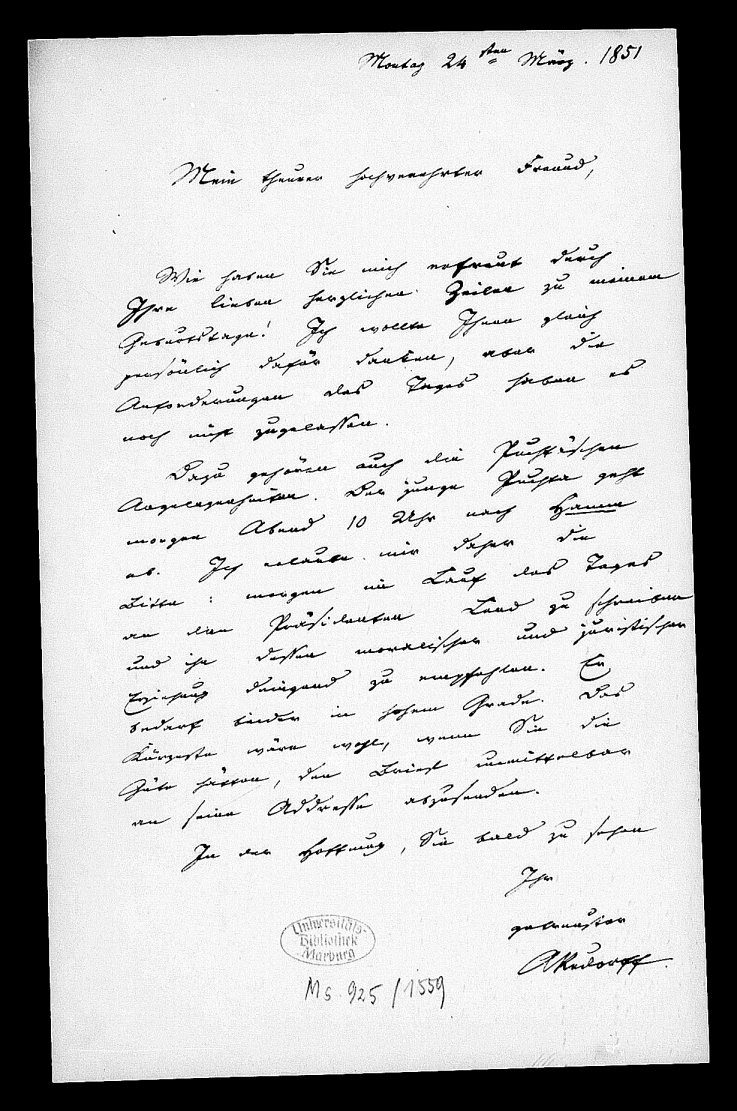 Montag 24sten März. 1851
Mein theurer hochverehrter Freund,
Wie haben Sie mich erfreut durch
Ihre lieben herzlichen Zeilen zu meinem
Geburtstage! Ich wollte Ihnen gleich
persönlich dafür danken, aber die
Anforderungen des Tages haben es
noch nicht zugelassen.
Dazu gehören auch die Puchtaischen
Angelegenheiten. Der junge Puchta geht
morgen Abend 10 Uhr nach Hamm
ab. Ich erlaube mir daher die
Bitte: morgen im Lauf des Tages
an den Präsidenten Lent zu schreiben
und ihm dessen moralischer und juristischer
Erziehung dringend zu empfehlen. Er
bedarf beider in hohem Grade. Das
Kürzeste wäre wohl, wenn Sie die
Güte hätten, den Brief unmittelbar
an seine Addresse abzusenden.
In der Hoffnung, Sie bald zu sehen
Ihr
getreuster
ARudorff.
Universitäts-
Bibliothek
Marburg
Ms. 925/1559